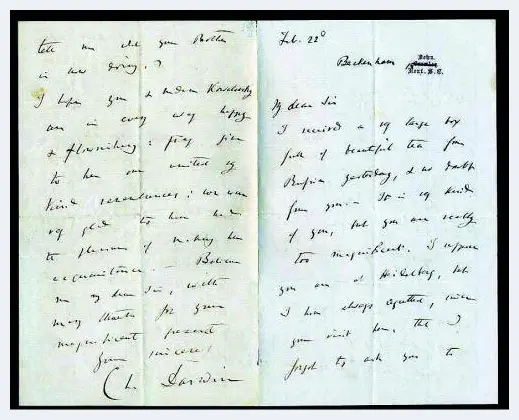 Feb. 22ᵈ
Down,
Beckenham
Kent. S.E.
My dear Sir
I received a very large box
full of beautiful tea from
Russia yesterday, & no doubt
from you.— It is very kind
of you, but you are really
too magnificent. I suppose
you are at Heidelberg, but
I have always regretted, since
your visit here, that I
forgot to ask you to
tell me what your Brother
is now doing?
I hope you & Madam Kowalevsky
are in every way happy
& flourishing: pray give
to her our united very
kind remembrances; we were
very glad to have had
the pleasure of making her
acquaintance.— Believe
me my dear Sir, with
many thanks for your
magnificent present
Yours sincerely
Ch. Darwin